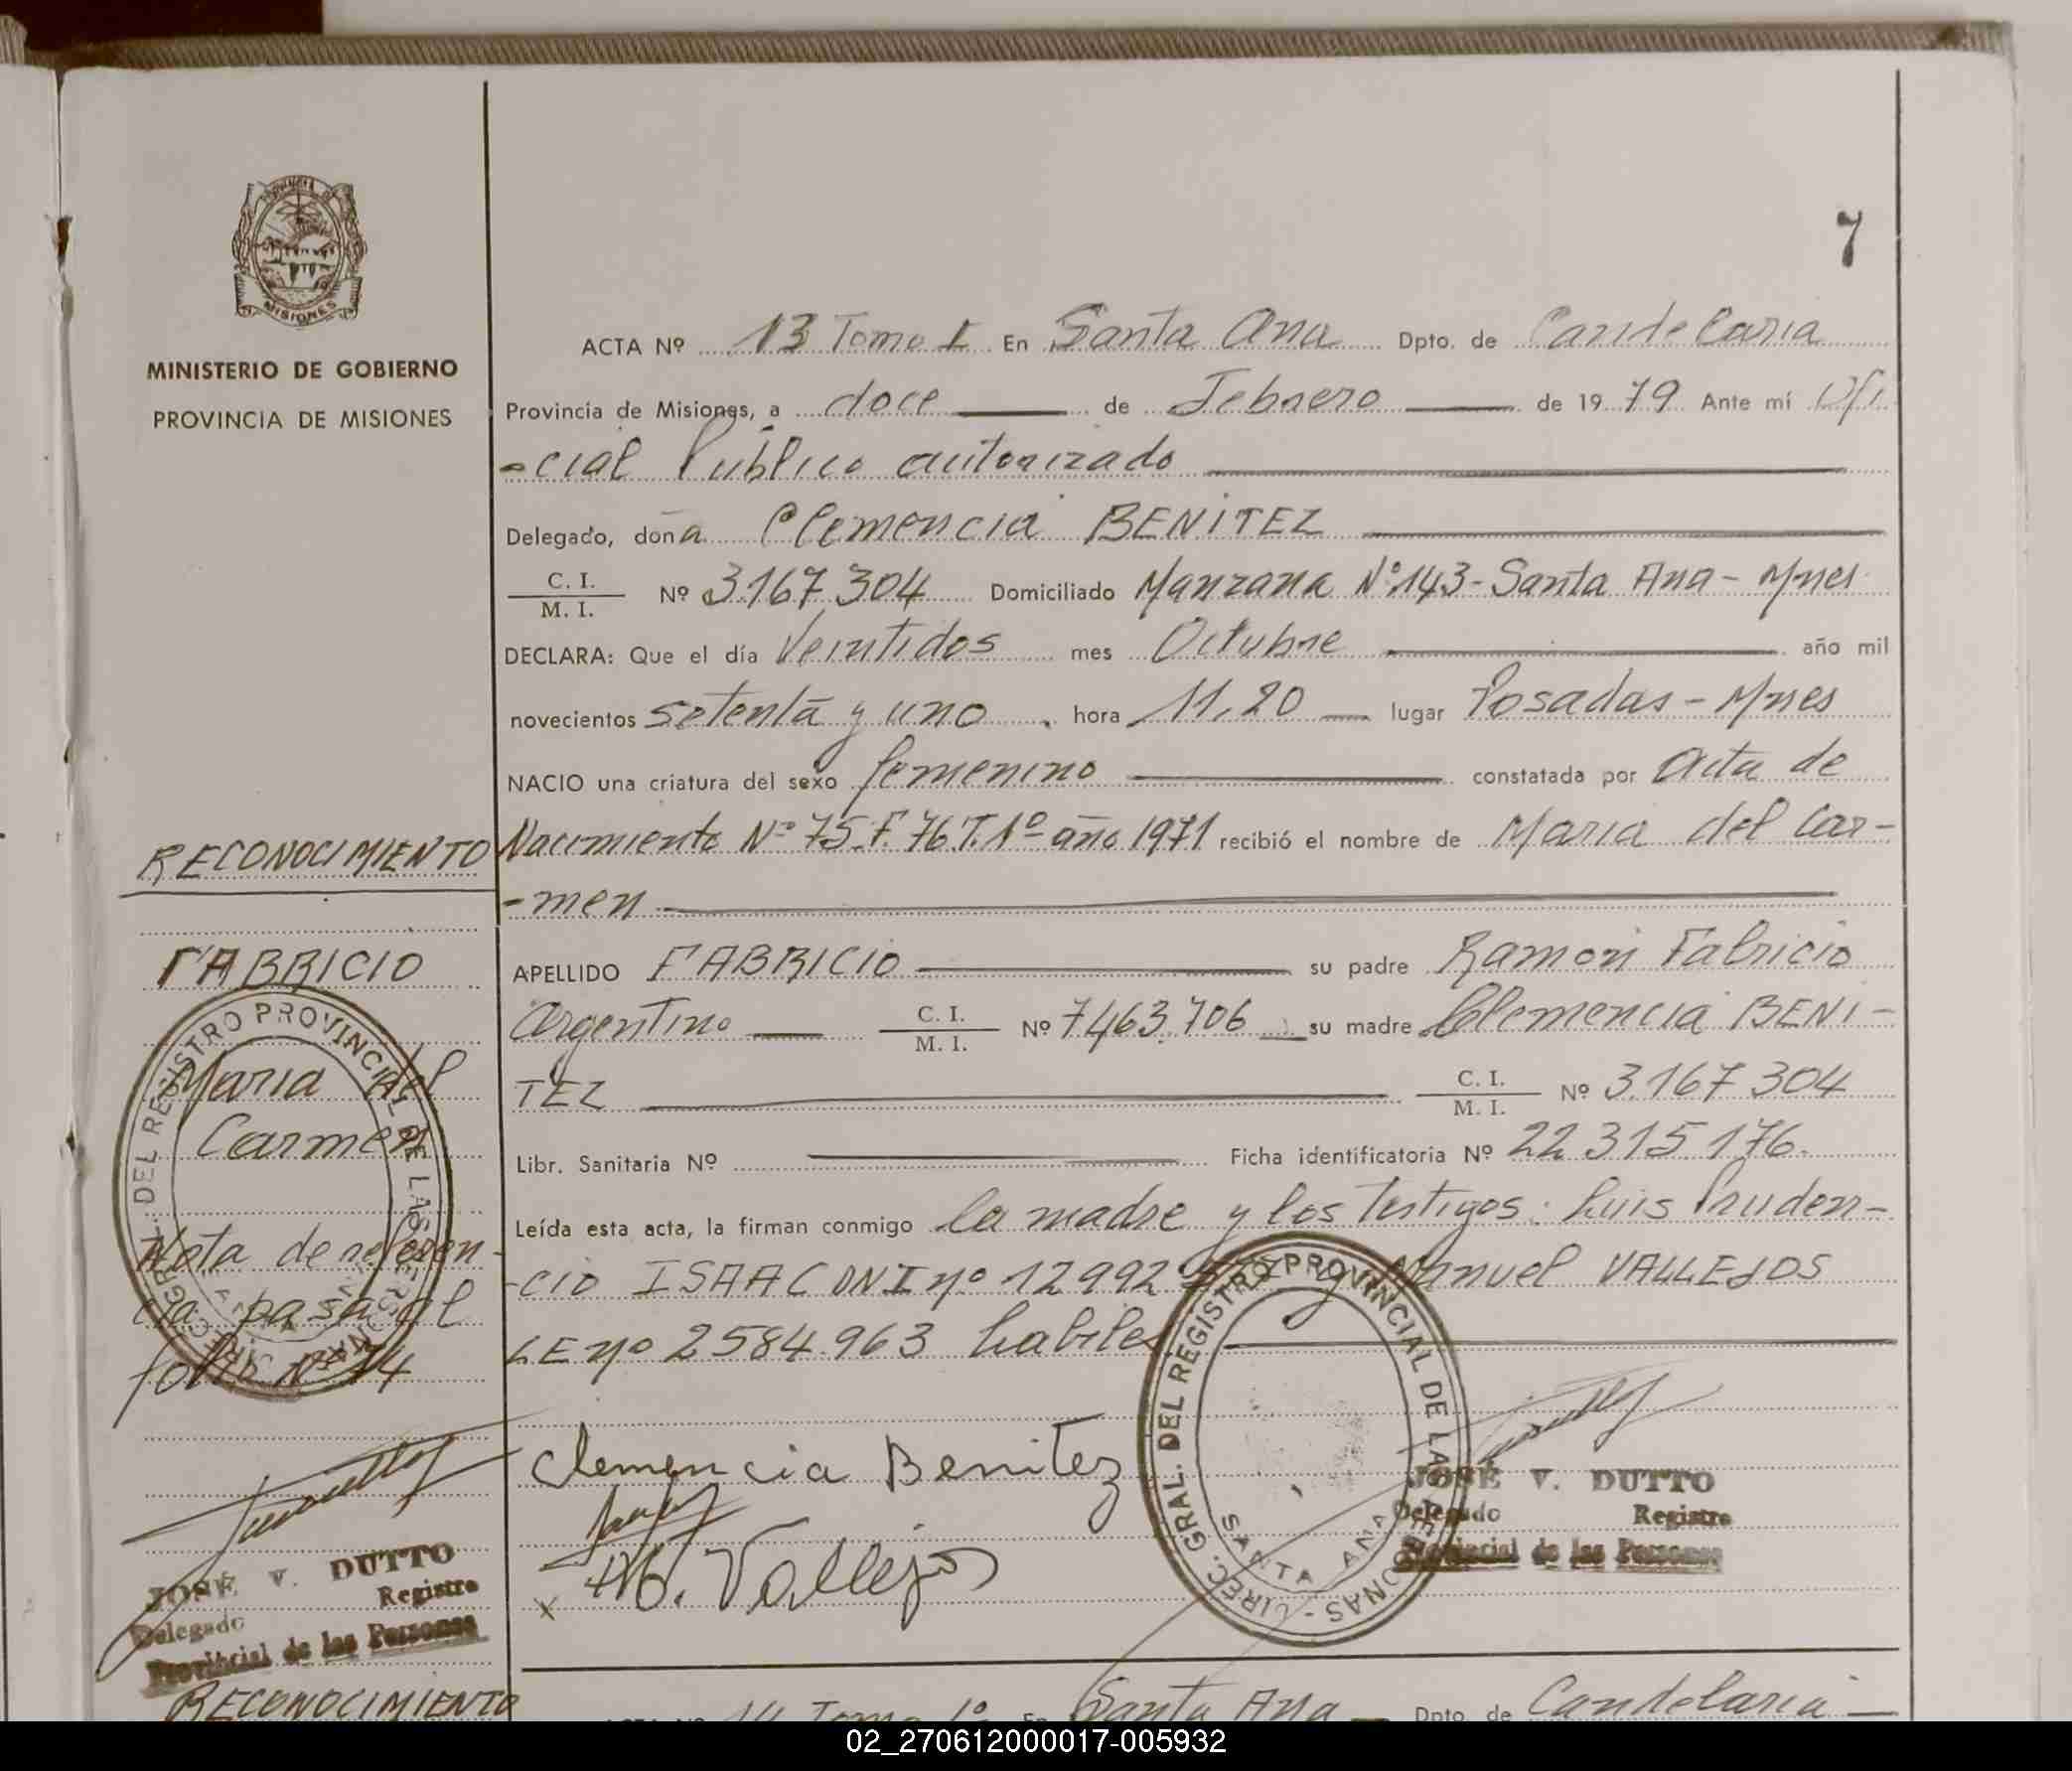 7
PROVINCIA DE
MISIONES
MINISTERIO DE GOBIERNO
PROVINCIA DE MISIONES
ACTA Nº 13 Tomo I En Santa Ana Dpto. de Candelaria
Provincia de Misiones, a doce de Febrero de 1979 Ante mí Ofi
-cial Público autorizado
Delegado, doña Clemencia BENITEZ
C. I.
M. I. Nº 3.167.304 Domiciliado Manzana Nº 143-Santa Ana- Mnes
DECLARA: Que el día Veintidos mes Octubre año mil
novecientos setenta y uno hora 11,20 lugar Posadas - Mnes
NACIO una criatura del sexo femenino constatada por Acta de
Nacimiento Nº 75 F. 76 T. 1º año 1971 recibió el nombre de Maria del Car-
-men
APELLIDO FABRICIO su padre Ramon Fabricio
Argentino C. I.
M. I. Nº 7.463.706 su madre Clemencia BENI-
TEZ C. I.
M. I. Nº 3.167.304
Libr. Sanitaria Nº Ficha identificatoria Nº 22.315.176.
Leída esta acta, la firman conmigo la madre y los testigos: Luis Pruden-
-cio ISAAC DNI nº 12992 y Manuel VALLEJOS
LE nº 2584.963 habiles
Clemencia Benitez
M. Vallejos
x
DIREC. GRAL. DEL REGISTRO PROVINCIAL DE LAS PERSONAS -
SANTA ANA
JOSÉ V. DUTTO
Delegado Registro
Provincial de las Personas
RECONOCIMIENTO
FABRICIO
Maria del
Carmen
Nota de referen-
cia pasa al
folio Nº 14
DIREC. GRAL. DEL REGISTRO PROVINCIAL DE LAS PERSONAS
JOSÉ V. DUTTO
Delegado Registro
Provincial de las Personas
RECONOCIMIENTO
ACTA Nº 14 Tomo 1º En Santa Ana Dpto. de Candelaria
02_270612000017-005932